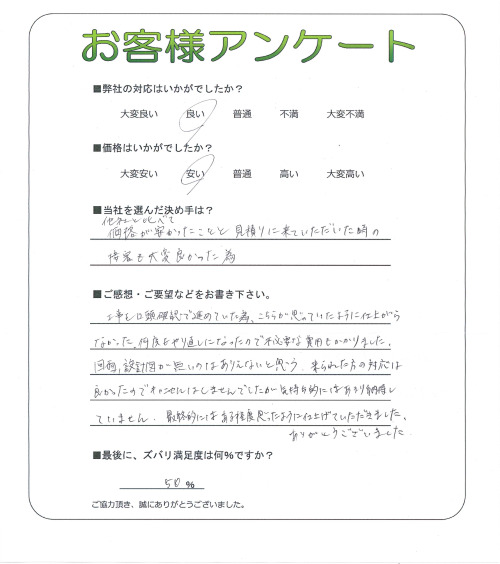 お客様アンケート
■弊社の対応はいかがでしたか？
大変良い 良い 普通 不満 大変不満
■価格はいかがでしたか？
大変安い 安い 普通 高い 大変高い
■当社を選んだ決め手は？
他社と比べて
価格が安かったことと見積りに来ていただいた時の
接客も大変良かった為
■ご感想・ご要望などをお書き下さい。
工事を口頭確認で進めていた為、こちらが思っていたように仕上がら
なかった。何度もやり直しになったので不必要な費用もかかりました。
図面、設計図が無いのはありえないと思う。来られた方の対応は
良かったのでキャンセルはしませんでしたが気持ち的にはあまり納得し
ていません。最終的にはある程度思ったように仕上げていただきました。
ありがとうございました。
■最後に、ズバリ満足度は何%ですか？
50 %
ご協力頂き、誠にありがとうございました。